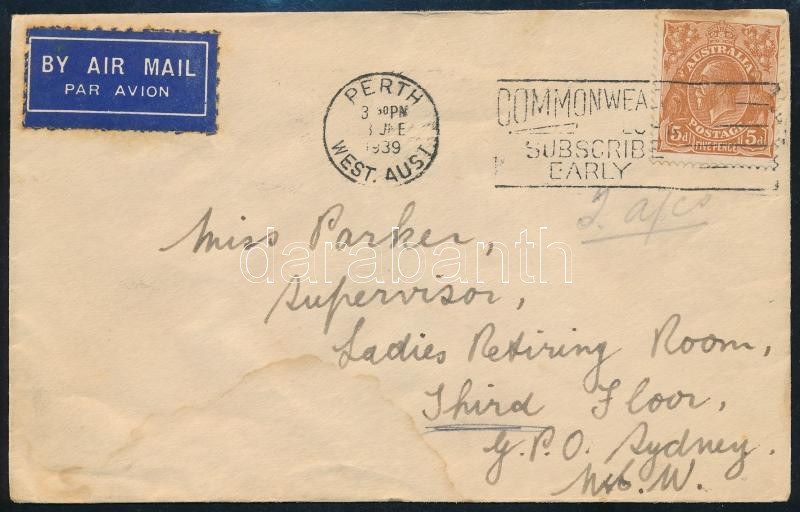 BY AIR MAIL
PAR AVION
PERTH
3 30PM
1939
WEST. AUST.
COMMONWEA
SUBSCRIBE
EARLY
AUSTRALIA
POSTAGE
5d FIVE PENCE 5d
Miss Parker,
darabanth
Supervisor,
Ladies Retiring Room,
Third Floor,
G.P.O. Sydney.
N.S.W.